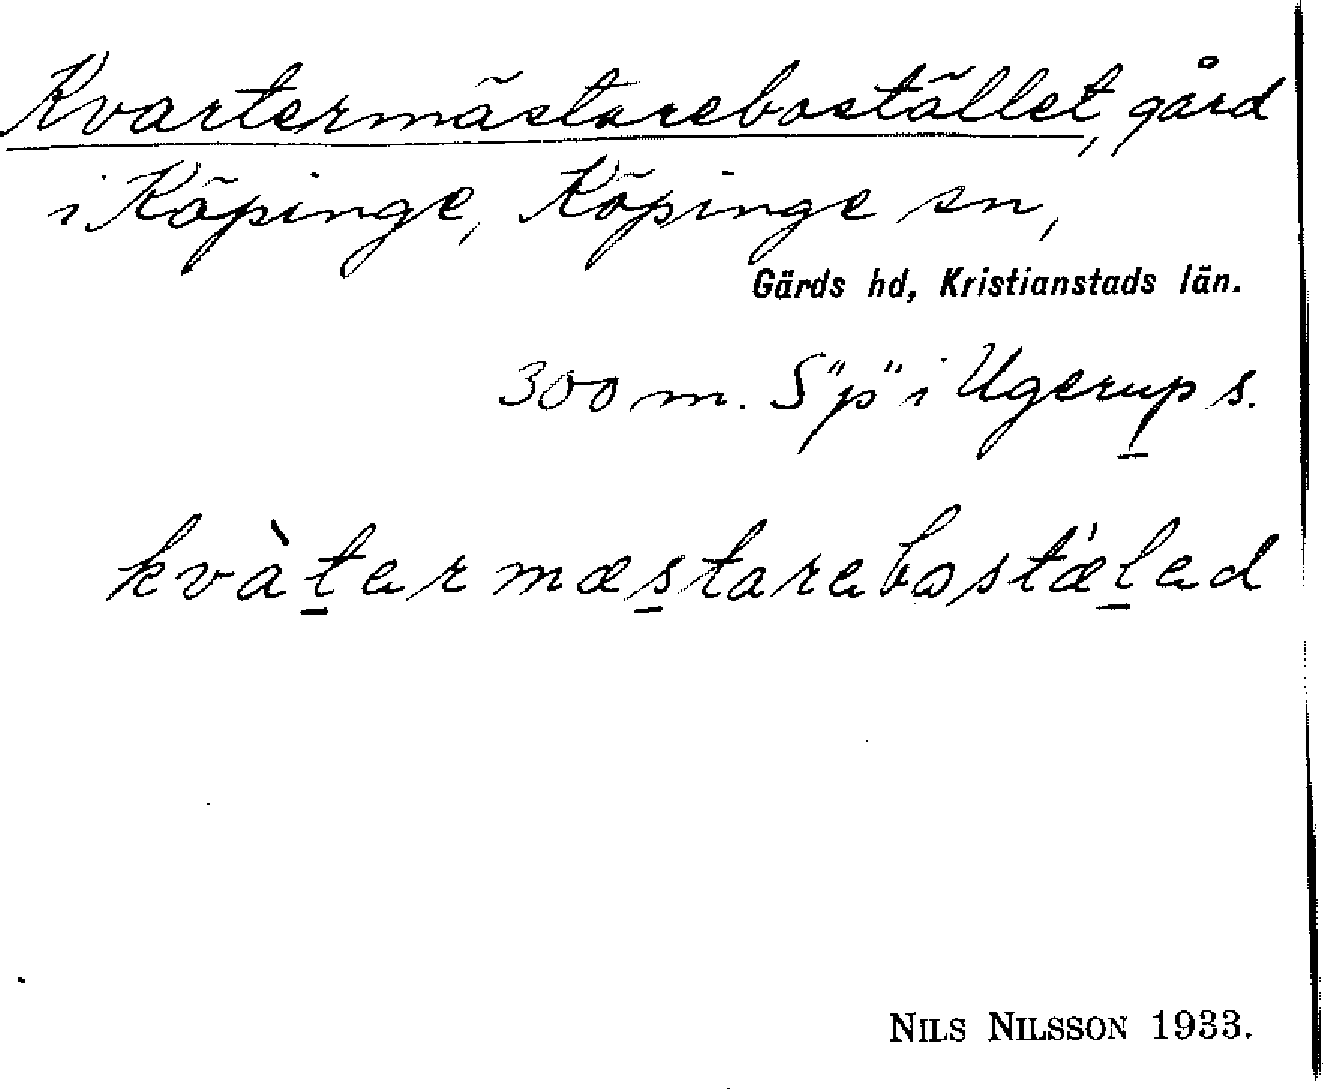 Kvartermästarebostället, gård
i Köpinge, Köpinge sn,
Gärds hd, Kristianstads län.
300 m. S "p" i Ugerup s.
kvàt̲ermæs̲tarebostǽl̲ed
NILS NILSSON 1933.